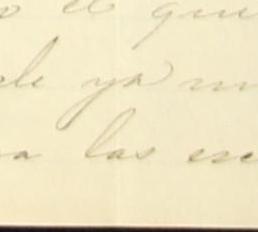 o el que
de ya m
a las esc